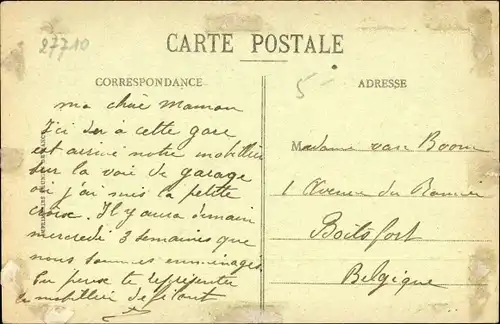 27710
CARTE POSTALE
CORRESPONDANCE
ADRESSE
5-
ma chère Maman
Ici à cette gare
est arrivé notre mobilier
sur la voie de garage
où j'ai mis la petite
croix. Il y aura demain
mercredi 3 semaines que
nous sommes emménagés
Tu peux te représenter
le mobilier
Madame van Boom
1 Avenue du
Boitsfort
Belgique